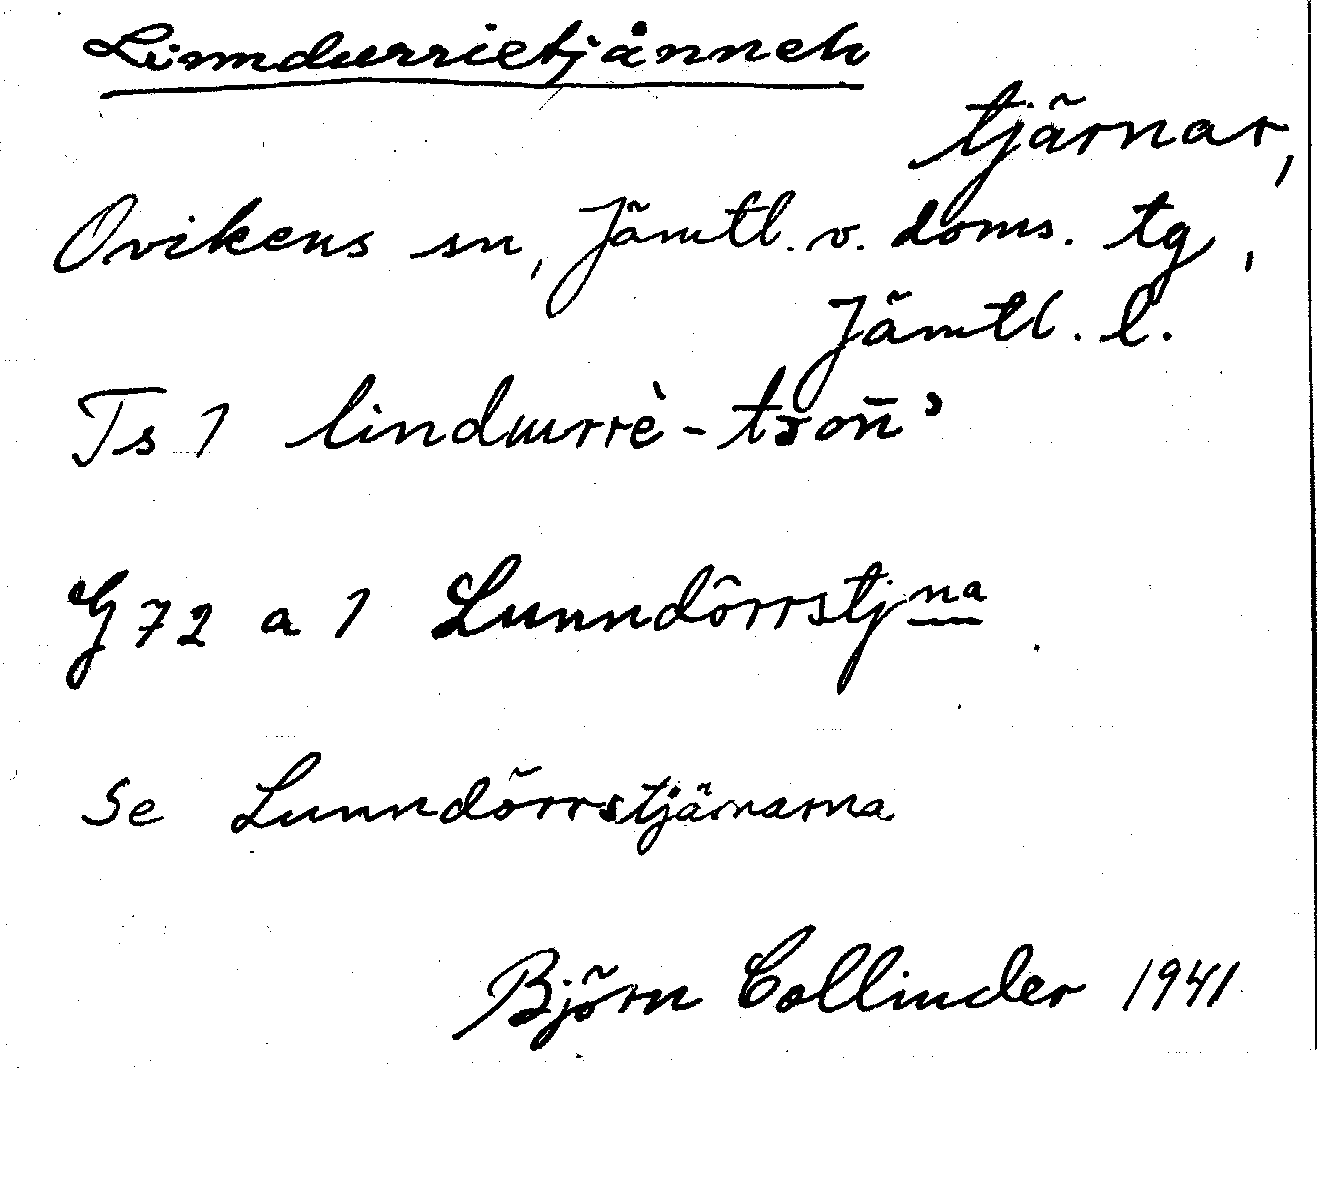 Linndurrietjånneh
tjärnar,
Ovikens sn, Jämtl. v. doms. tg,
Jämtl. l.
Ts 1
G 72 a 1 Lunndörrstjna
Se Lunndörrstjärnarna
Björn Collinder 1941